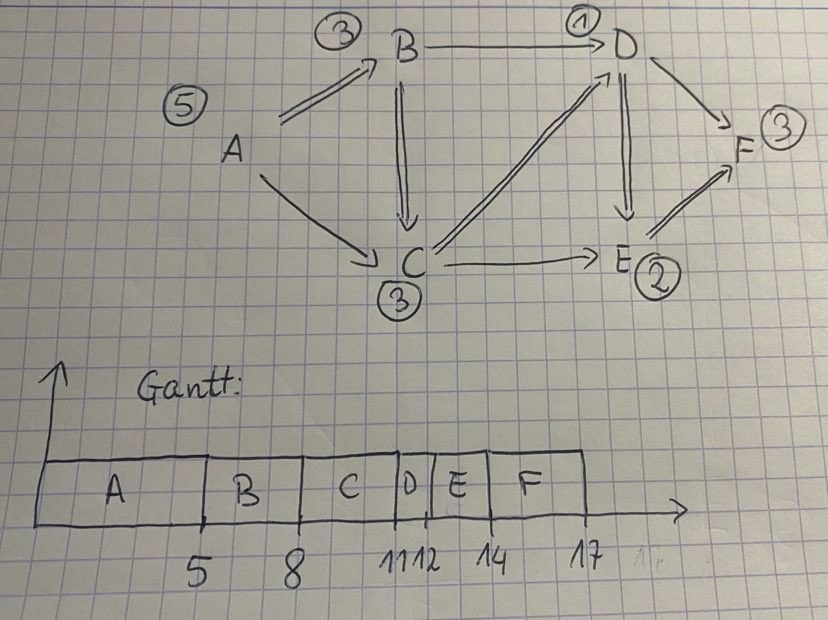 ③ B ① D
⑤ A F ③
C E ②
③
Gantt:
A B C D E F
5 8 11 12 14 17